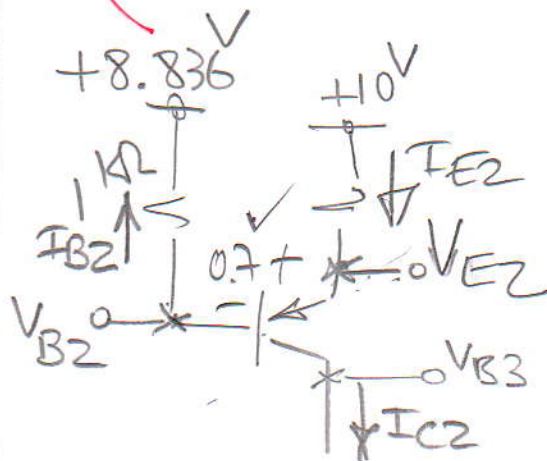 +8.836V
+10V
1KΩ
IE2
IB2
0.7+
VE2
-
VB2
VB3
IC2